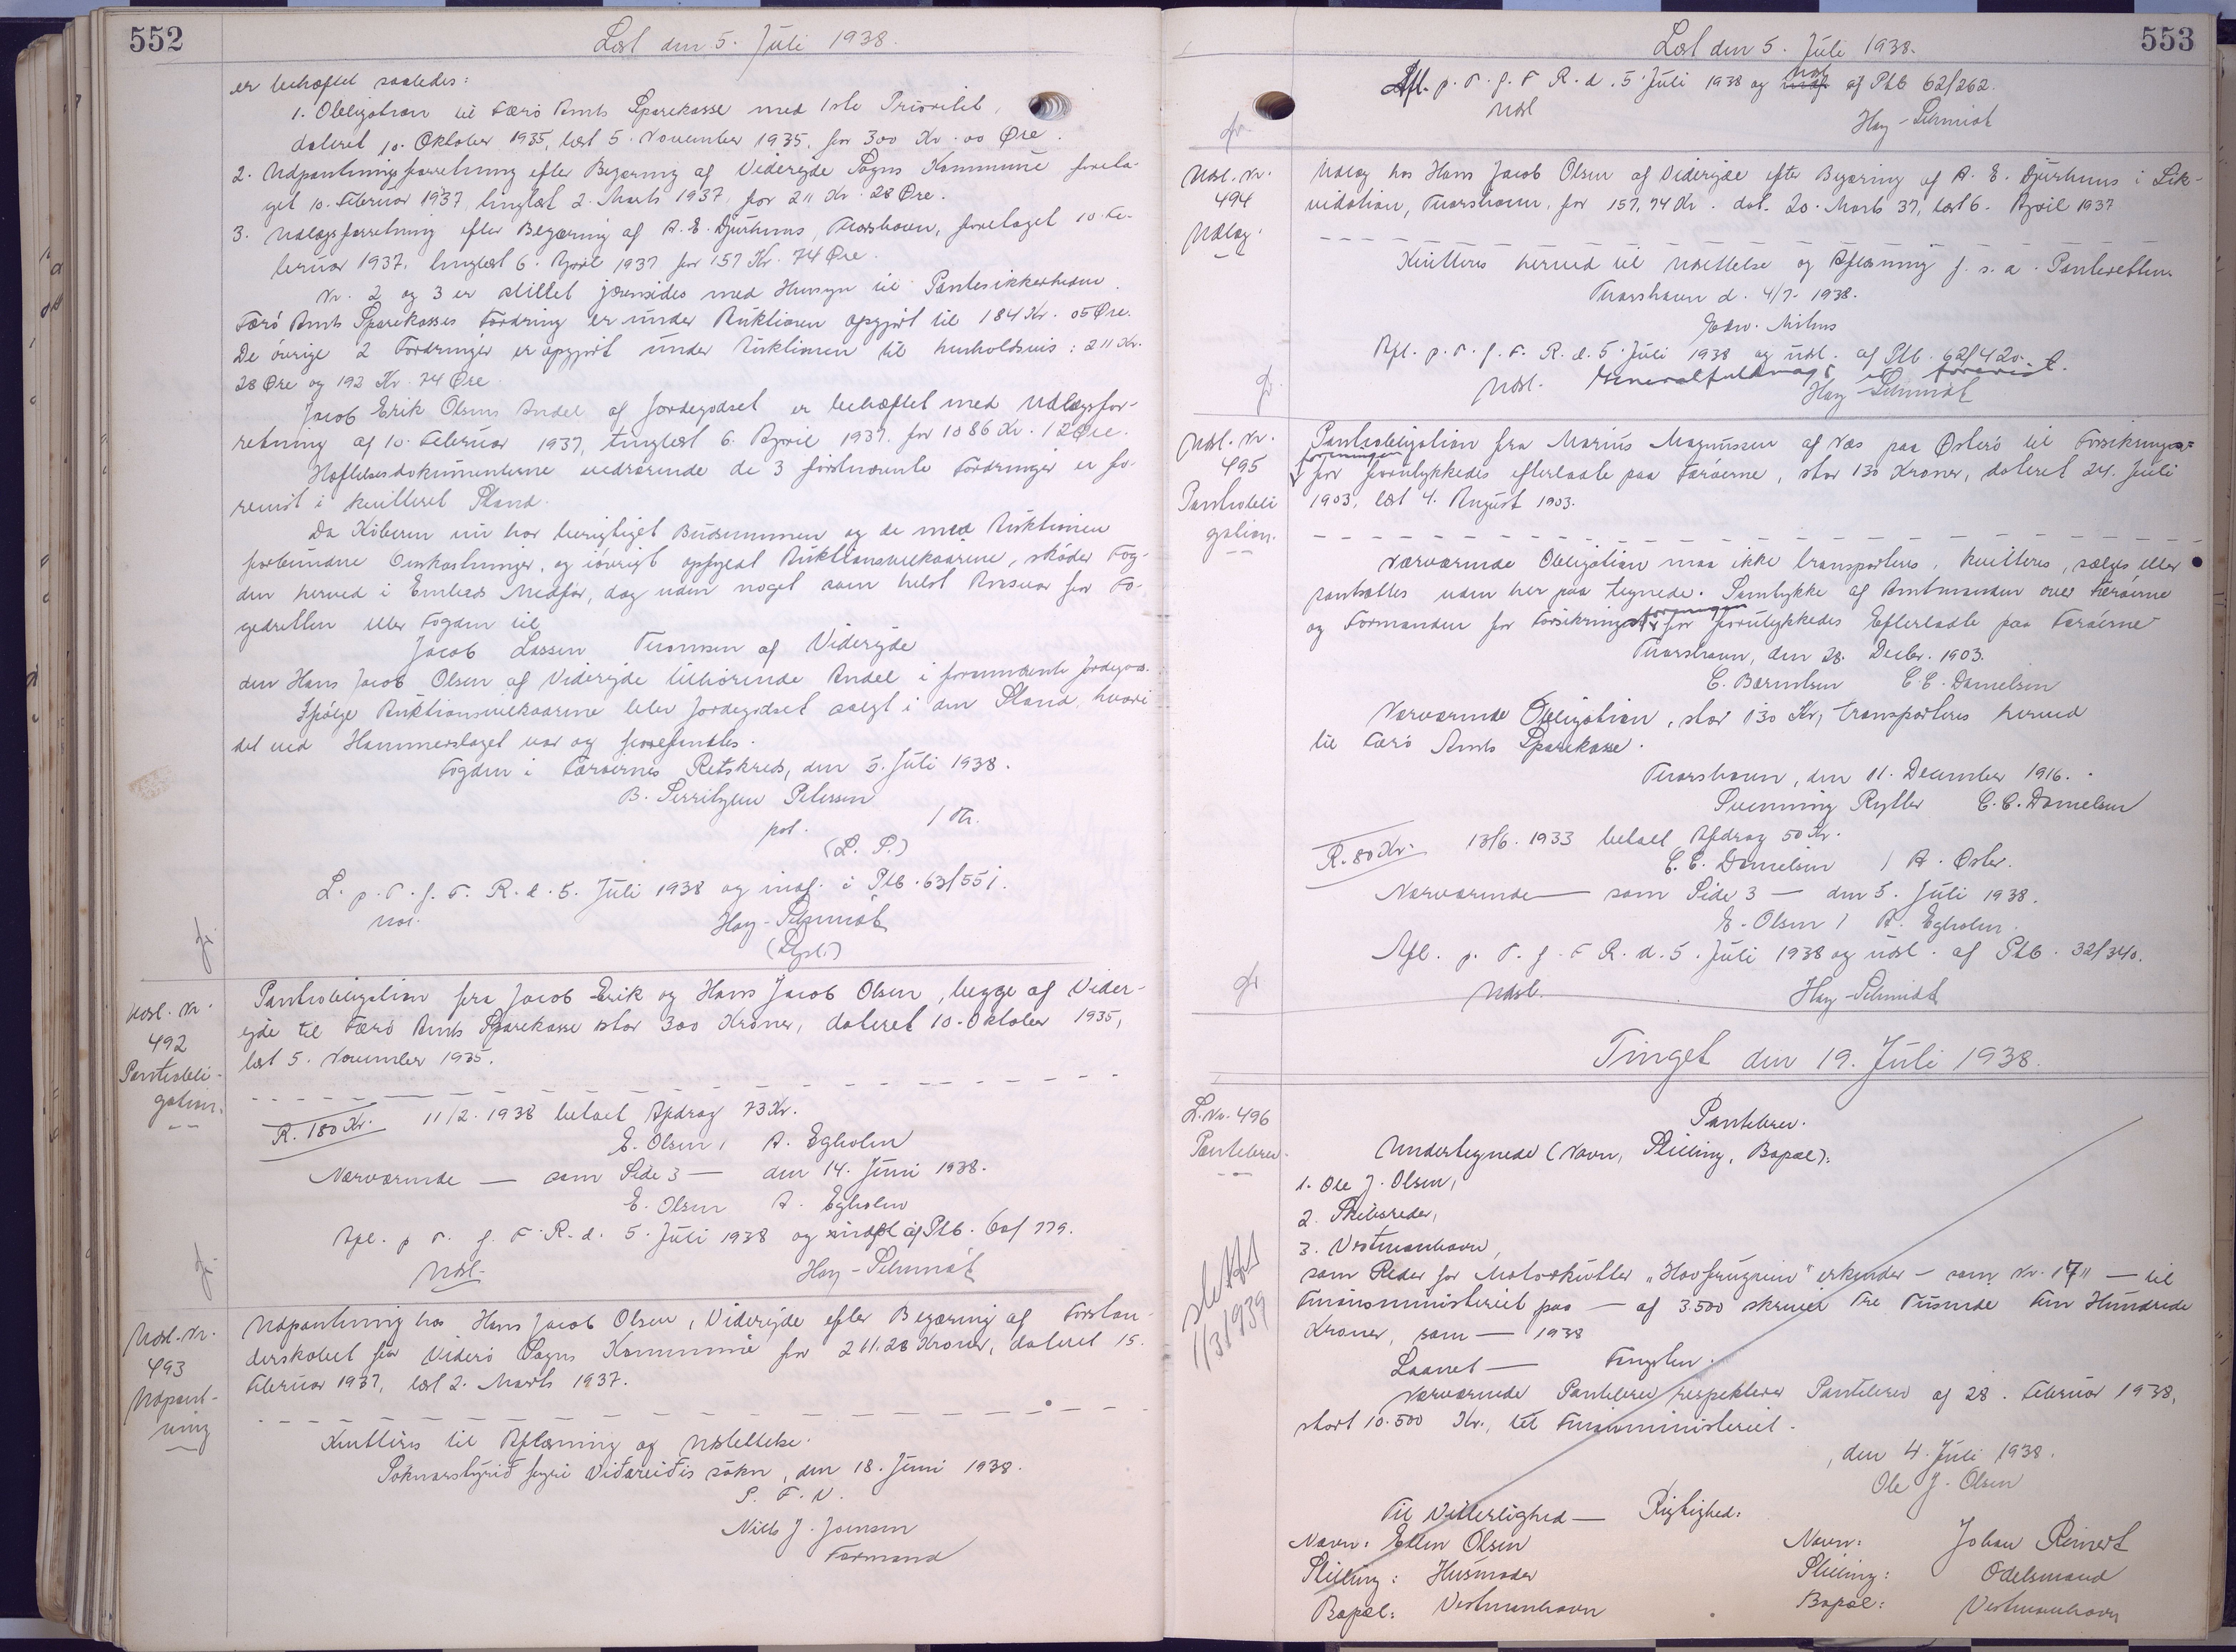 552
Læst den 5. Juli 1938.
er behæftet saaledes:
1. Obligation til Færö Amts Sparekasse med 1ste Prioritet,
dateret 10. Oktober 1935, læst 5. November 1935, for 300 Kr. 00 Øre.
2. Udpantningsforretning efter Begæring af Viderejde Sogns Kommune foreta-
get 10. Februar 1937, tinglæst 2. Marts 1937, for 211 Kr. 28 Øre.
3. Udlægsforretning efter Begæring af A. E. Djurhuus, Thorshavn, foretaget 10. Fe-
bruar 1937, tinglæst 6. April 1937 for 157 Kr. 74 Øre.
Nr. 2 og 3 er stillet jævnsides med Hensyn til Pantesikkerheden.
Færö Amts Sparekasses Fordring er under Auktionen opgjort til 184 Kr. 05 Øre.
De övrige 2 Fordringer er opgjort under Auktionen til henholdsvis: 211 Kr.
28 Øre og 192 Kr. 74 Øre.
Jacob Erik Olsens Andel af Jordegodset er behæftet med Udlægsfor-
retning af 10. Februar 1937, tinglæst 6. April 1937. for 1086 Kr. 12 Øre.
Hæftelsesdokumenterne vedrörende de 3 förstnævnte Fordringer er fo-
revist i kvitteret Stand.
Da Köberen nu har berigtiget Budsummen og de med Auktionen
forbundne Omkostninger, og iövrigt opfyldt Auktionsvilkaarene, sköder Fog-
den herved i Embeds Medfør, dog uden noget som helst Ansvar for Fo-
gedretten eller Fogden til
Jacob Lassen Thomsen af Viderejde
den Hans Jacob Olsen af Viderejde tilhörende Andel i forannævnte Jordegods.
Ifølge Auktionsvilkaarene blev Jordegodset solgt i den Stand, hvori
det ved Hammerslaget var og forefandtes.
Fogden i Færøernes Retskreds, den 5. Juli 1938.
B. Serritzlew Petersen
pol. / Th.
(L. S.)
L. p. T. f. F. R. d. 5. Juli 1938 og indf. i Ptb. 63/551.
Hay-Schmidt
Udsl. Nr.
492
Pantobli-
gation.
Pantobligation fra Jacob Erik og Hans Jacob Olsen, begge af Vider-
ejde til Færö Amts Sparekasse stor 300 Kroner, dateret 10. Oktober 1935,
læst 5. November 1935.
R. 180 Kr. 11/2. 1938 betalt Afdrag 73 Kr.
E. Olsen / A. Egholm
Nærværende — som Side 3 — den 14. Juni 1938.
E. Olsen A. Egholm
Afl. p. T. f. F. R. d. 5. Juli 1938 og af Ptb. 60/779.
Udsl. Hay-Schmidt
Udsl. Nr.
493
Udpant-
ning
Udpantning hos Hans Jacob Olsen, Viderejde efter Begæring af Forstan-
derskabet for Viderö Sogns Kommune for 211.28 Kroner, dateret 15.
Februar 1937, læst 2. Marts 1937.
Kvitteres til Aflæsning og Udslettelse.
Soknarstýrið fyri Viðareiðis sókn, den 18. Juni 1938.
S. F. V.
Niels J. Joensen
Formand
553
Læst den 5. Juli 1938.
Afl. p. T. f. F. R. d. 5. Juli 1938 og udsl af Ptb 62/262.
Udsl Hay-Schmidt
Udsl. Nr.
494
Udlæg.
Udlæg hos Hans Jacob Olsen af Viderejde efter Begæring af A. E. Djurhuus i Lik-
vidation, Thorshavn, for 157,74 Kr. dat. 20. Marts 37, læst 6. April 1937
Kvitteres herved til Udslettelse og Aflæsning f. s. a. Panteretten
Thorshavn d. 4/7. 1938.
Edw. Mitens
Afl. p. T. f. F. R. d. 5. Juli 1938 og udsl. af Ptb. 62/420.
Udsl. Generalfuldmagt er forevist.
Hay-Schmidt
Udsl. Nr.
495
Pantobli
gation.
Pantobligation fra Marius Magnussen af Næs paa Österö til Forsikrings-
foreningen
for forulykkedes efterladte paa Færöerne, stor 130 Kroner, dateret 24. Juli
1903, læst 4. August 1903.
Nærværende Obligation maa ikke transporteres, kvitteres, sælges eller
pantsættes uden her paa tegnede Samtykke af Amtmanden over Færöerne
foreningen
og Formanden for Forsikrings for forulykkedes Efterladte paa Færöerne
Thorshavn, den 28. Decbr. 1903.
C. Bærentsen C. C. Danielsen
Nærværende Obligation, stor 130 Kr, transporteres herved
til Færö Amts Sparekasse.
Thorshavn, den 11. December 1916.
Svenning Rytter C. C. Danielsen
R. 80 Kr. 13/6. 1933 betalt Afdrag 50 Kr.
C. C. Danielsen / A. Oster.
Nærværende — som Side 3 — den 5. Juli 1938.
E. Olsen / A. Egholm
Afl. p. T. f. F R. d. 5. Juli 1938 og udsl. af Ptb. 32/340.
Udsl. Hay-Schmidt
Tinget den 19. Juli 1938.
L. Nr. 496
Pantebrev.
slettet
1/3 1939
Pantebrev.
Undertegnede (Navn, Stilling, Bopæl):
1. Ole J. Olsen,
2. Skibsreder,
3. Vestmanhavn,
som Reder for Motorkutter "Havfrugvin" erkender — som Nr. 17" — til
Finansministeriet paa — af 3.500 skriver Tre Tusinde Fem Hundrede
Kroner, som — 1938
Laanet — Fangsten.
Nærværende Pantebrev respekterer Pantebrev af 28. Februar 1938,
stort 10.500 Kr., til Finansministeriet.
, den 4. Juli 1938.
Ole J. Olsen
Til Vitterlighed — Rigtighed:
Navn: Ellen Olsen Navn: Johan Reinert
Stilling: Husmoder Stilling: Odelsmand
Bopæl: Vestmanhavn Bopæl: Vestmanhavn